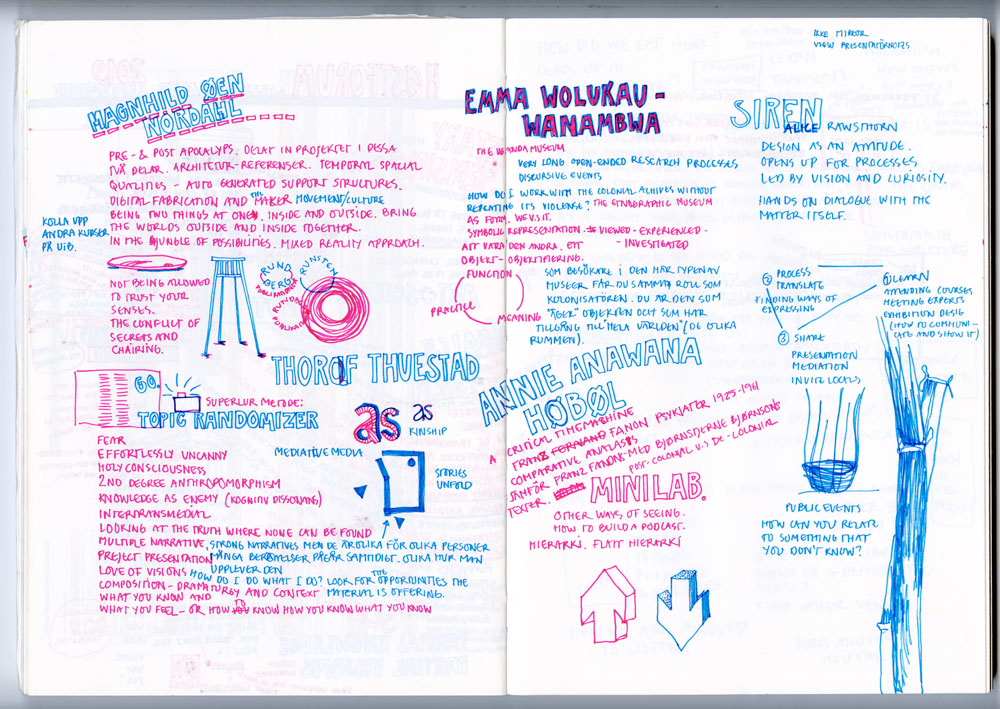 MAGNHILD ØEN
NORDAHL
PRE- & POST APOCALYPS. DELAT IN PROJEKTET I DESSA
TVÅ DELAR. ARCHITETUR-REFERENSER. TEMPORAL SPACIAL
QUALITIES - AUTO GENERATED SUPPORT STRUCTURES.
DIGITAL FABRICATION AND THE MAKER MOVEMENT/CULTURE
BEING TWO THINGS AT ONE. INSIDE AND OUTSIDE. BRING
THE WORLDS OUTSIDE AND INSIDE TOGETHER.
IN THE JUNGLE OF POSSIBILITIES. MIXED REALITY APPROACH.
KOLLA UPP
ANDRA KURSER
PÅ UIB.
NOT BEING ALLOWED
TO TRUST YOUR
SENSES.
THE CONFLICT OF
SECRETS AND
CHAIRING.
RUND
BERG
RUNSTEN
THOROLF THUESTAD
60.
SUPERLUR METODE:
TOPIC RANDOMIZER
as as
KINSHIP
FEAR
EFFORTLESSLY UNCANNY
HOLY CONSCIOUSNESS
2ND DEGREE ANTHROPOMORPHISM
KNOWLEDGE AS ENEMY (KOGNITIV DISSONANS)
INTERTRANSMEDIAL
LOOKING AT THE TRUTH WHERE NONE CAN BE FOUND
MULTIPLE NARRATIVE,
PREJECT PRESENTATION
LOVE OF VISIONS
COMPOSITION - DRAMATURGY AND CONTEXT
WHAT YOU KNOW AND
WHAT YOU FEEL - OR HOW KNOW HOW YOU KNOW WHAT YOU KNOW
MEDIATIVE MEDIA
STORIES
UNFOLD
STRONG NARRATIVES MEN DE ÄR OLIKA FÖR OLIKA PERSONER
MÅNGA BERÄTTELSER PÅGÅR SAMTIDIGT. OLIKA HUR MAN
UPPLEVER DEN
HOW DO I DO WHAT I DO? LOOK FOR THE OPPORTUNITIES THE
MATERIAL IS OFFERING.
EMMA WOLUKAU-
WANAMBWA
THE UGANDA MUSEUM
VERY LONG OPEN-ENDED RESEARCH PROCESSES
DISCURSIVE EVENTS
HOW DO I WORK WITH THE COLONIAL ACHIVES WITHOUT
REPEATING ITS VIOLENSE? THE ETNOGRAPHIC MUSEUM
AS FORM. WE VISIT.
SYMBOLIC REPRESENTATION. VIEWED - EXPERIENCED.
ATT VARA DEN ANDRA. ETT - INVESTIGATED
OBJEKT - OBJEKTIFIERING.
FUNCTION
PRACTICE
MEANING
SOM BESÖKARE I DEN HÄR TYPEN AV
MUSEER FÅR DU SAMMA ROLL SOM
KOLONISATÖREN. DU ÄR DEN SOM
"ÄGER" OBJEKTEN OCH SOM HAR
TILLGÅNG TILL "HELA VÄRLDEN" (DE OLIKA
RUMMEN).
ANNIE ANAWANA
HOBØL
A CRITICAL TIMEMACHINE
FRANZ FANON PSYKIATER 1925-1961
COMPARATIVE ANALASIS
JÄMFÖR FRANZ FANON MED BJØRNSTJERNE BJØRNSONS
TEXTER.
POST-COLONIAL V.S DE-COLONIAL
MINILAB.
OTHER WAYS OF SEEING.
HOW TO BUILD A PODCAST.
HIERARKI. FLATT HIERARKI
IKKE MIRROR
VIEW PRESENTATÖRNOTES
SIREN
ALICE RAWSTHORN
DESIGN AS AN ATTITUDE.
OPENS UP FOR PROCESSES,
LED BY VISION AND CURIOSITY.
HANDS ON DIALOGUE WITH THE
MATTER ITSELF.
② PROCESS
TRANSLATE
FINDING WAYS OF
EXPRESSING
① LEARN
ATTENDING COURSES
MEETING EXPERTS
EXHIBITION DESIG
(HOW TO COMMUNI-
CATE AND SHOW IT)
③ SHARE
PRESENTATION
MEDIATION
INVITE LOCALS
PUBLIC EVENTS
HOW CAN YOU RELATE
TO SOMETHING THAT
YOU DON'T KNOW?